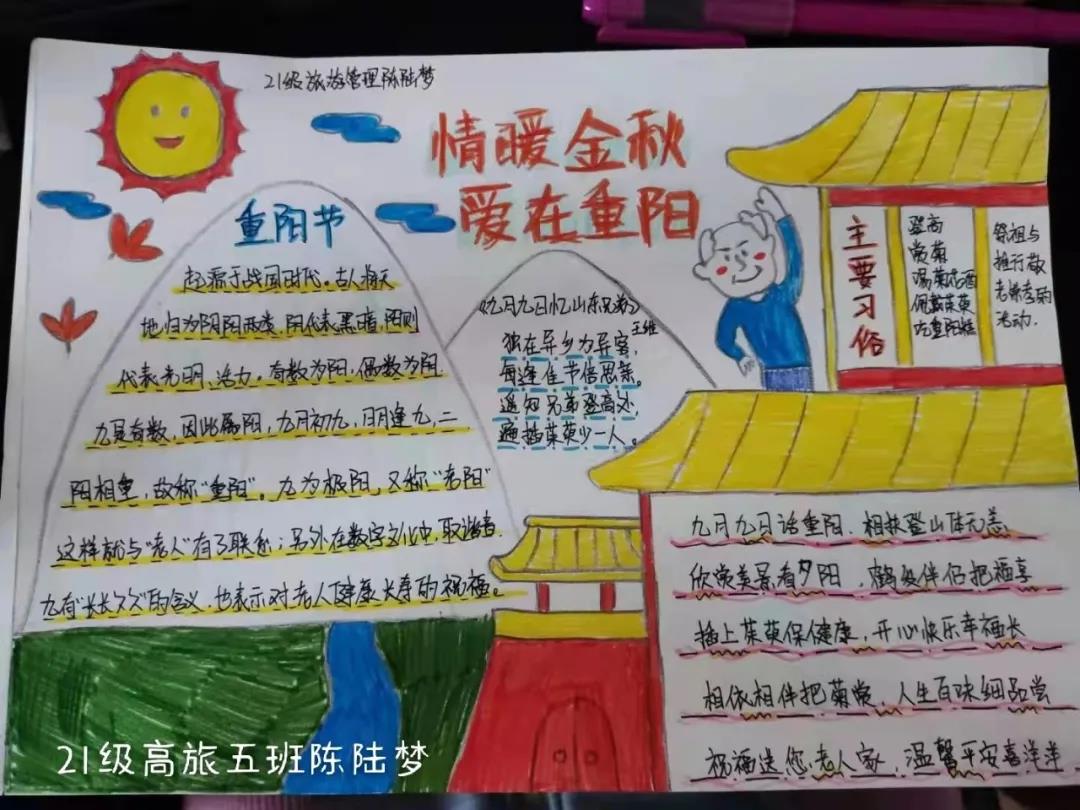 21级旅游管理陈陆梦
情暖金秋
爱在重阳
重阳节
起源于战国时代。古人将天
地归为阴阳两类，阴代表黑暗，阳则
代表光明、活力。奇数为阳，偶数为阴
九是奇数，因此属阳，九月初九，日月逢九，二
阳相重，故称“重阳”。九为极阳，又称“老阳”
这样就与“老人”有了联系；另外在数字文化中，取谐音
九有“长长久久”的含义，也表示对老人健康长寿的祝福。
《九月九日忆山东兄弟》
王维
独在异乡为异客，
每逢佳节倍思亲。
遥知兄弟登高处，
遍插茱萸少一人。
主要习俗
登高
赏菊
喝菊花酒
佩戴茱萸
吃重阳糕
祭祖与
推行敬
老
活动.
九月九日话重阳，相扶登山体无恙
欣赏美景看夕阳，鹤发伴侣把福享
插上茱萸保健康，开心快乐幸福长
相依相伴把菊赏，人生百味细品尝
祝福送您老人家，温馨平安喜洋洋
21级高旅五班陈陆梦